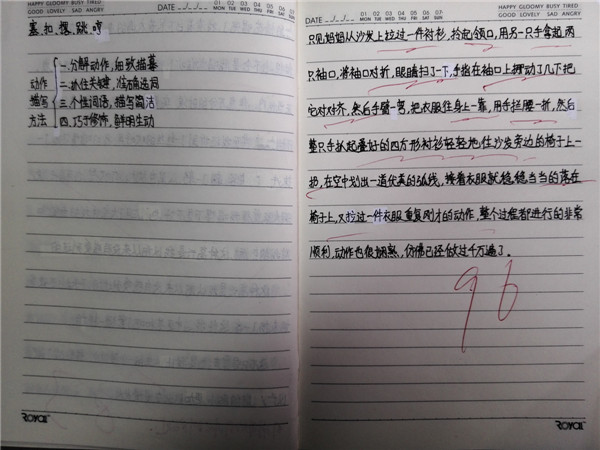 HAPPY GLOOMY BUSY TIRED
GOOD LOVELY SAD ANGRY
塞 扣 拽 跳 啃
一.分解动作,细致描摹
动作 二.抓住关键,准确选词
描写 三.个性词语,描写简洁
方法 四.巧于修饰,鲜明生动
ROYAL
DATE
01 02 03 04 05 06 07
MON TUE WED THU FRI SAT SUN
HAPPY GLOOMY BUSY TIRED
GOOD LOVELY SAD ANGRY
只见妈妈从沙发上拉过一件衬衫,拎起领口,用另一只手拿起两
只袖口,将袖口对折,眼睛扫了一下,手指在袖口上挪动了几下把
它对对齐,然后手臂一弯,把衣服往身上一靠,用手拦腰一折,然后
整只手扒起叠好的四方形衬衫轻轻地往沙发旁边的椅子上一
扔,在空中划出一道优美的弧线,接着衣服就稳稳当当的落在
椅子上,又拉过一件衣服重复刚才的动作,整个过程都进行的非常
顺利,动作也很娴熟,仿佛已经做过千万遍了。
96
ROYAL